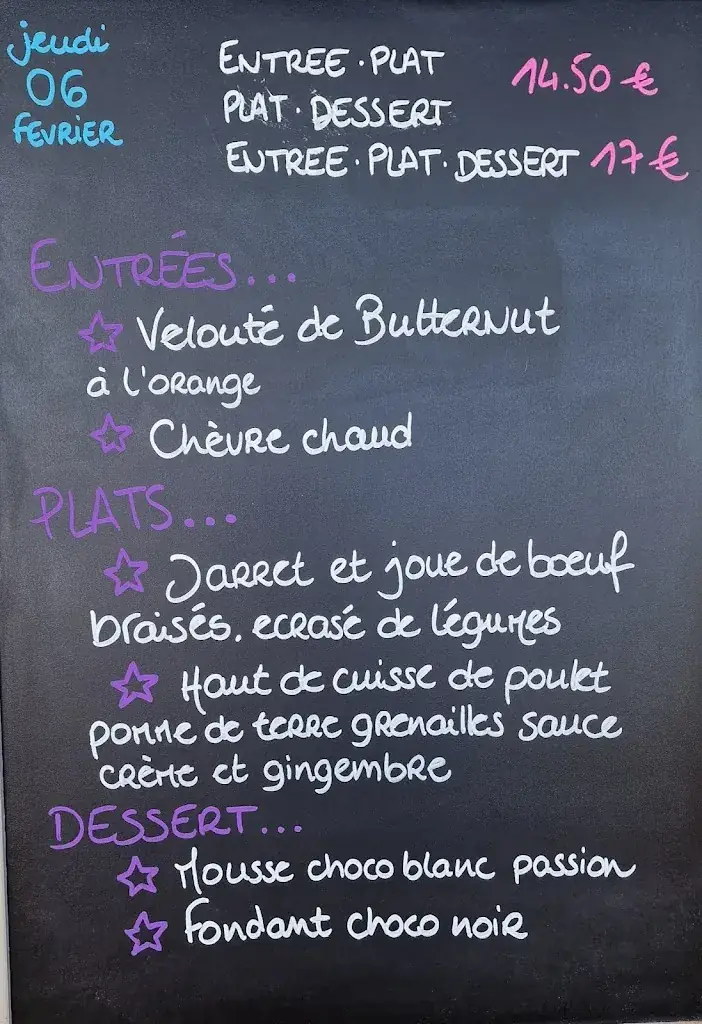 jeudi
06
FEVRIER
ENTREE · PLAT
PLAT · DESSERT
14.50 €
ENTREE · PLAT · DESSERT 17 €
ENTRÉES...
Velouté de Butternut
à l'orange
Chèvre chaud
PLATS...
Jarret et joue de boeuf
braisés. ecrasé de légumes
Haut de cuisse de poulet
pomme de terre grenailles sauce
crème et gingembre
DESSERT...
Mousse choco blanc passion
Fondant choco noir